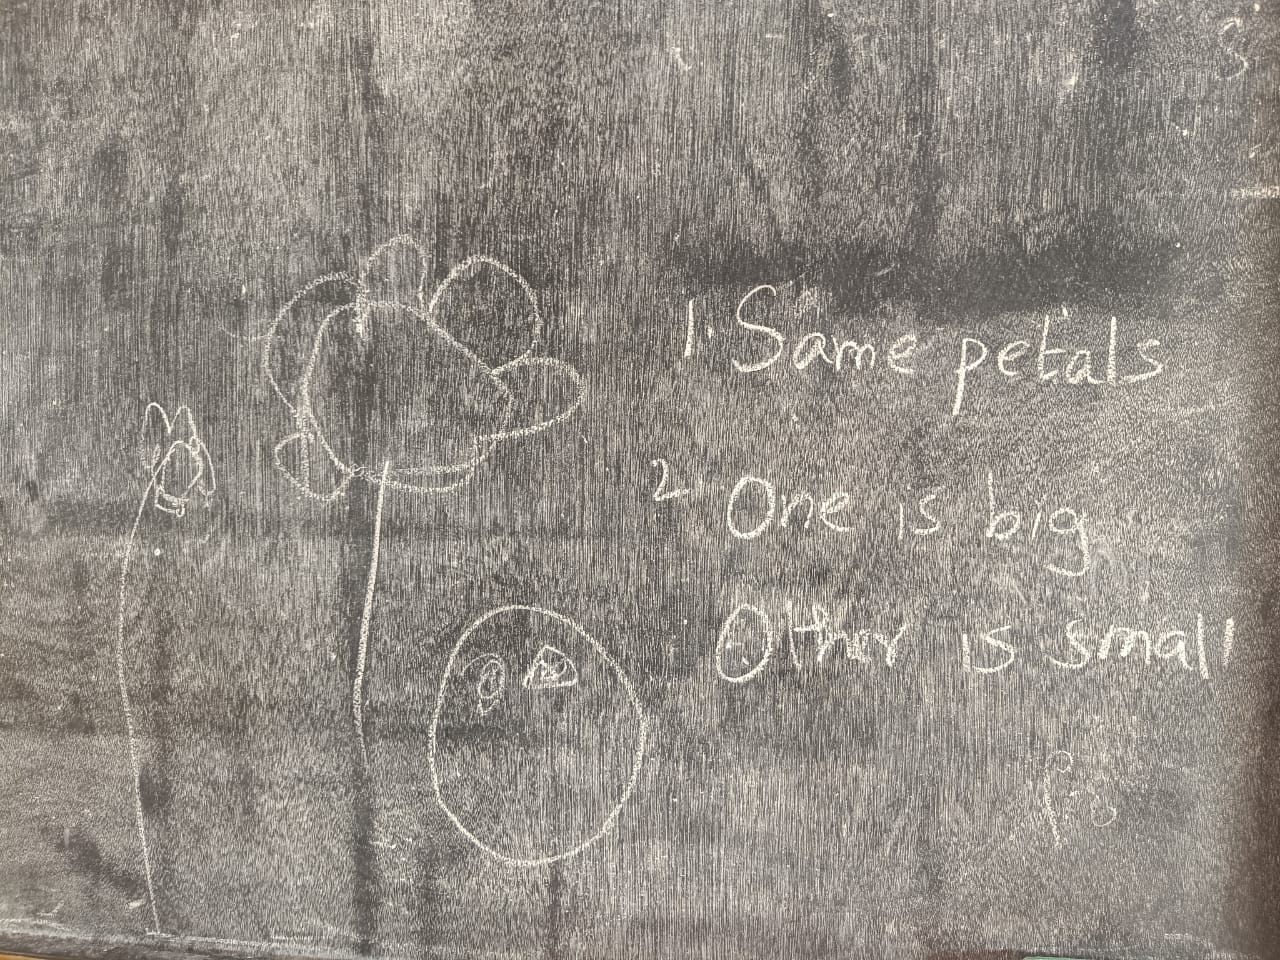 1. Same petals
2 One is big
Other is small